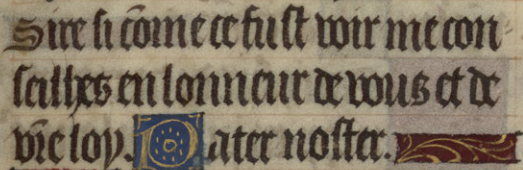 Sire si cõme ce fust voir me con-
seilliez en lonneur de vous et de
vr̃e loy. Pater noster.